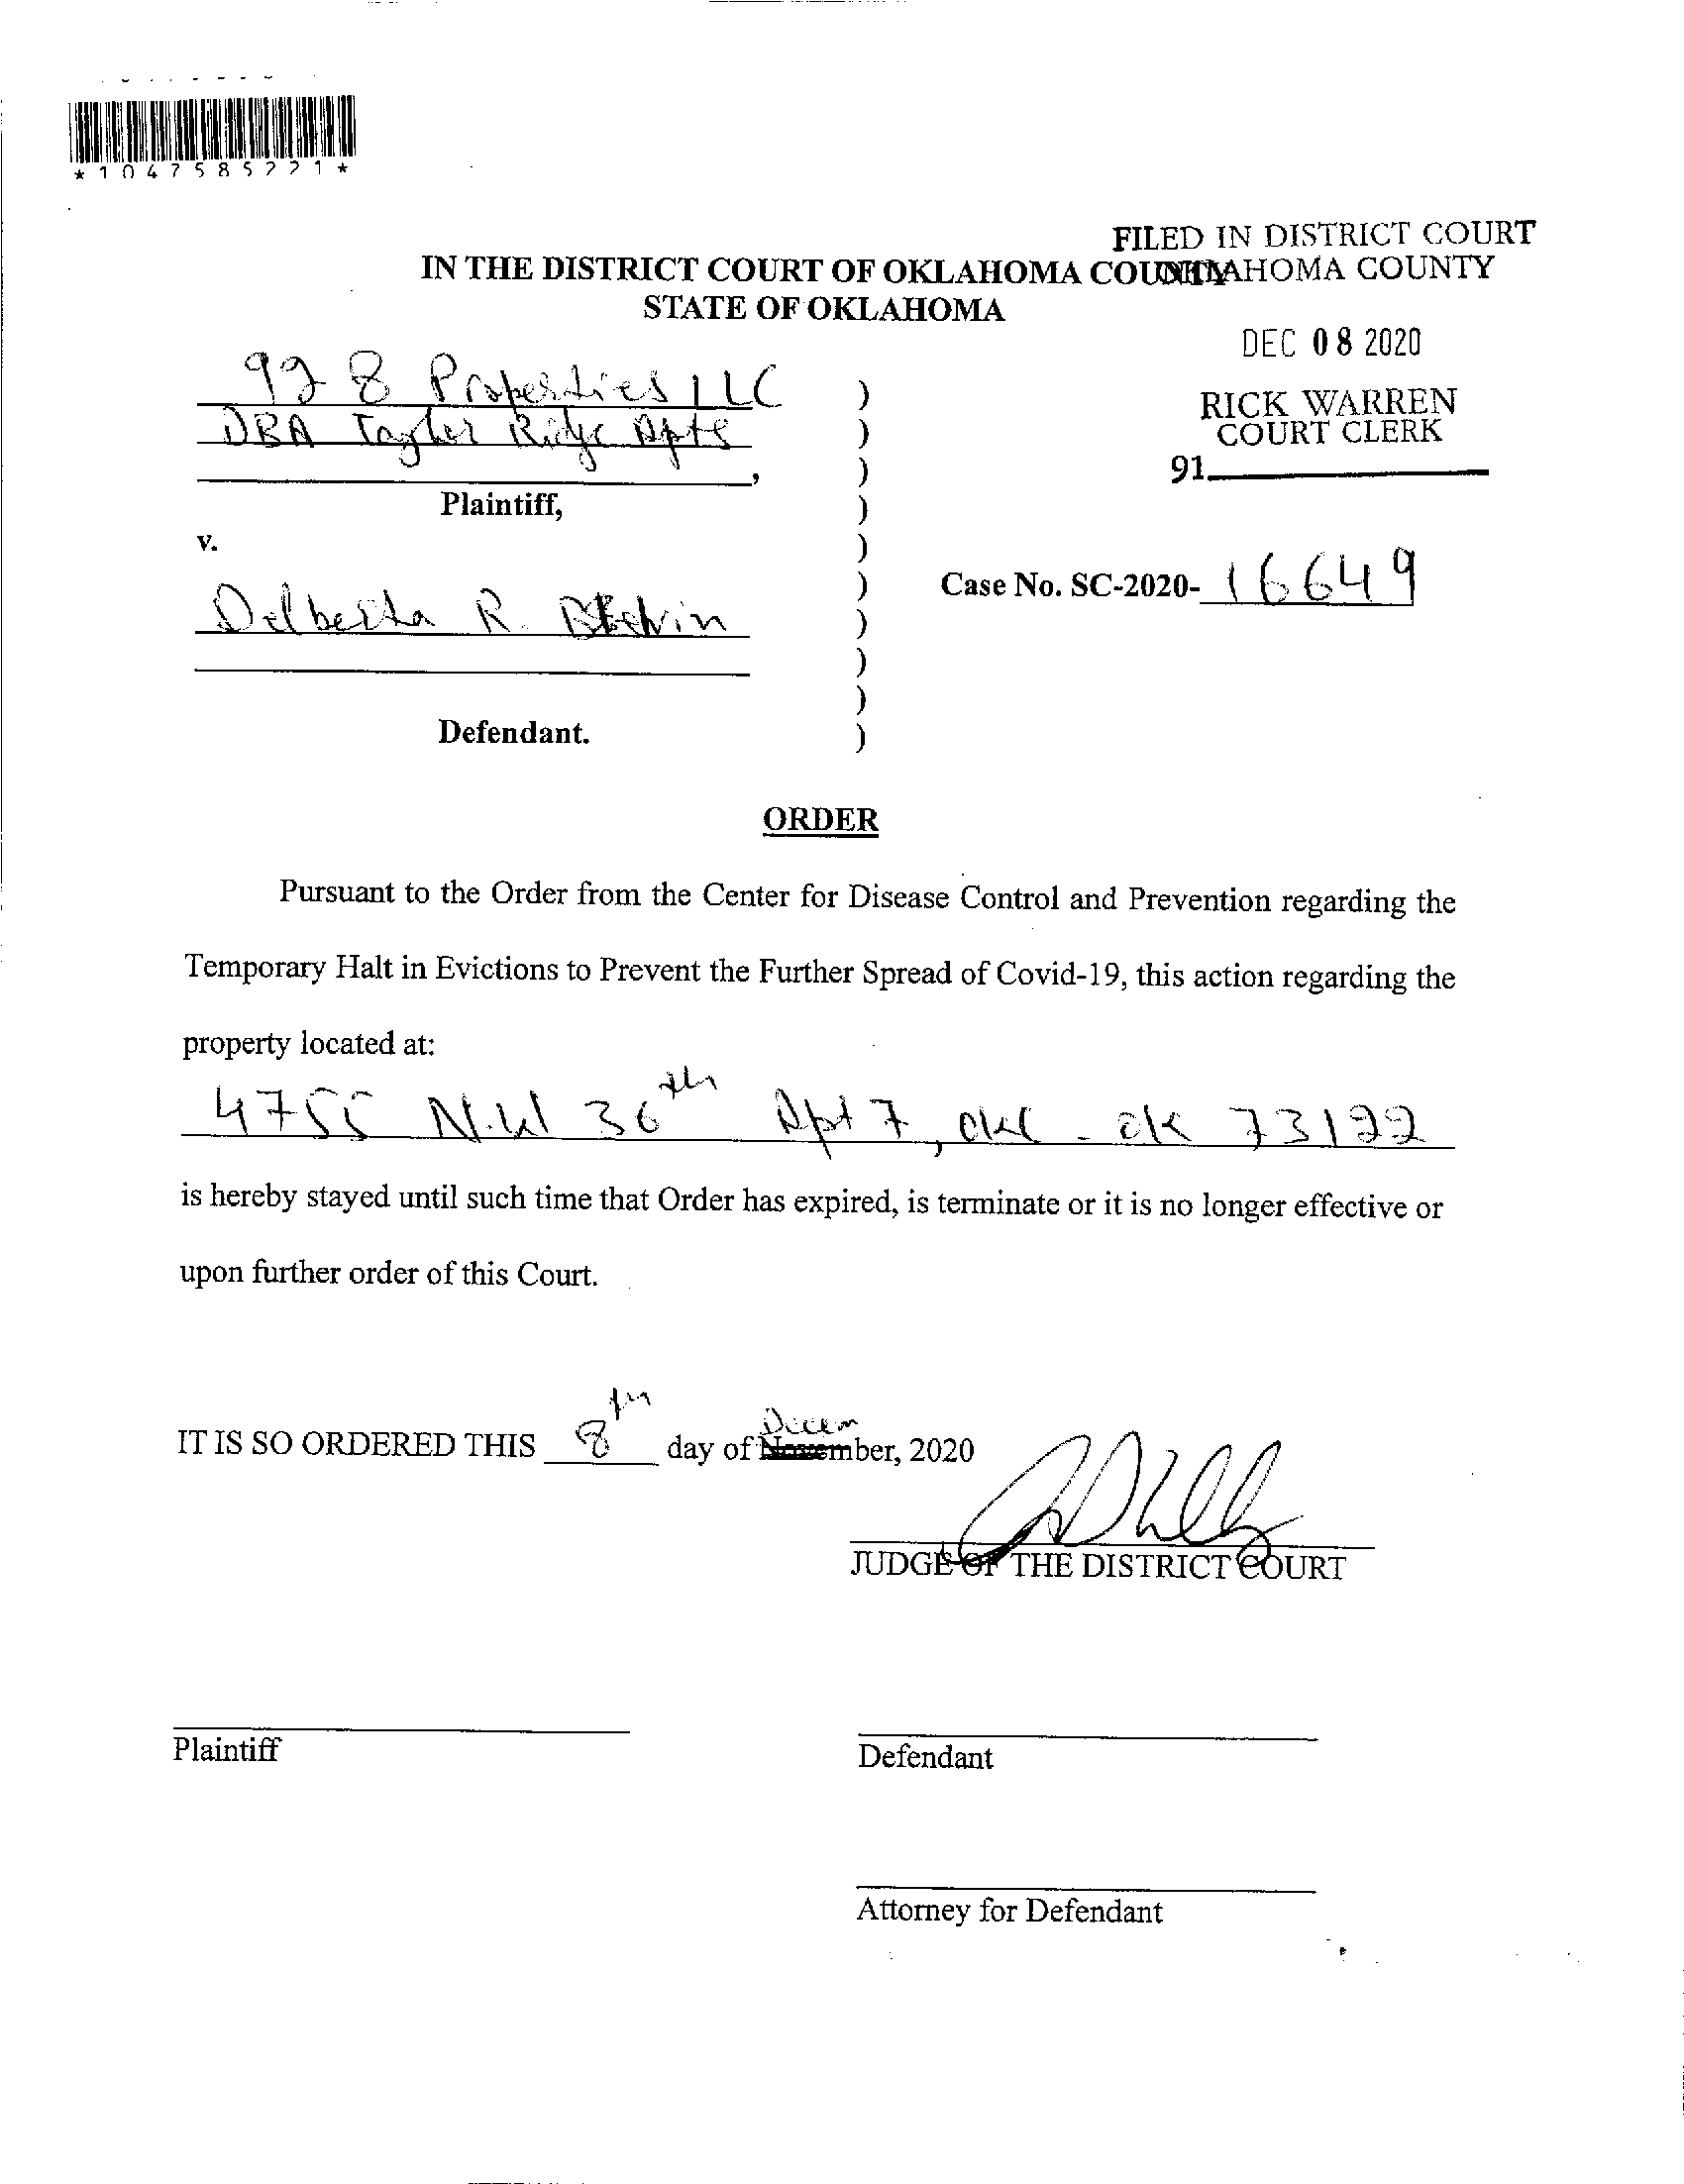 *1047585221*
FILED IN DISTRICT COURT
OKLAHOMA COUNTY
IN THE DISTRICT COURT OF OKLAHOMA COUNTY
STATE OF OKLAHOMA
DEC 08 2020
RICK WARREN
COURT CLERK
91
928 Properties LLC )
DBA Taylor Ridge Apts )
, )
Plaintiff, )
v. )
Case No. SC-2020-16649 )
Delberta R. )
)
)
Defendant. )
ORDER
Pursuant to the Order from the Center for Disease Control and Prevention regarding the
Temporary Halt in Evictions to Prevent the Further Spread of Covid-19, this action regarding the
property located at:
4755 N.W 36th Apt 7, okc - ok 73122
is hereby stayed until such time that Order has expired, is terminate or it is no longer effective or
upon further order of this Court.
IT IS SO ORDERED THIS 8th day of December, 2020
JUDGE OF THE DISTRICT COURT
Plaintiff
Defendant
Attorney for Defendant